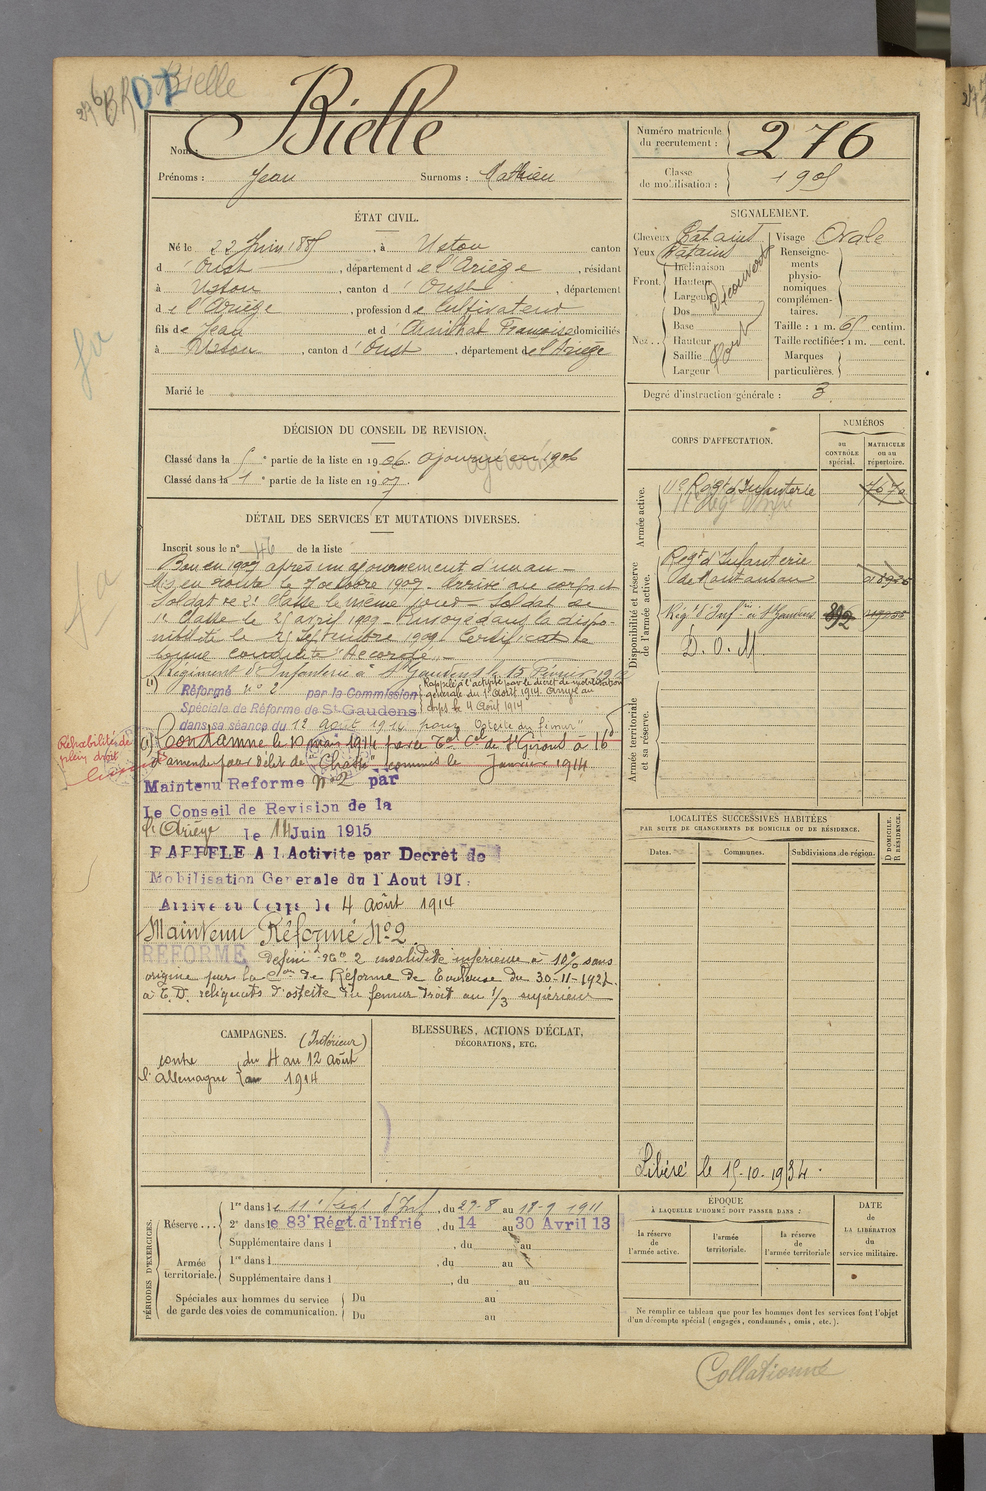 276 BRDT Bielle
Nom : Bielle
Prénoms : Jean Surnoms : Mathieu
Numéro matricule du recrutement : 276
Classe de mobilisation : 1905
ÉTAT CIVIL.
Né le 22 Juin 1885, à Ustou canton
d'Oust, département de l'Ariège, résidant
à Ustou, canton d'Oust, département
de l'Ariège, profession de Cultivateur
fils de Jean et d' Françoise domiciliés
à Ustou, canton d'Oust, département de l'Ariège
Marié le
SIGNALEMENT.
Cheveux Chatains
Yeux Chatains
Front. Inclinaison
Hauteur
Largeur
Découvert
Nez... Dos
Base
Hauteur
Saillie
Largeur
Fort
Visage Ovale
Renseignements physionomiques complémentaires.
Taille : 1 m. 65 centim.
Taille rectifiée : 1 m. cent.
Marques particulières.
Degré d'instruction générale : 3.
DÉCISION DU CONSEIL DE REVISION.
Classé dans la 5e partie de la liste en 1906. Ajourné en 1906
Classé dans la 1e partie de la liste en 1907.
DÉTAIL DES SERVICES ET MUTATIONS DIVERSES.
Inscrit sous le n° 46 de la liste
Bon en 1907 après un ajournement d'un an –
Mis en route le 7 octobre 1907. Arrivé au corps et
Soldat de 2e Classe le même jour – Soldat de
1e Classe le 25 avril 1909 – Envoyé dans la dispo-
nibilité le 25 Septembre 1909. Certificat de
bonne conduite "Accordé". –
Régiment d'Infanterie à St Gaudens le 15 Février 1912
Rappelé à l'activité par le décret de mobilisation
générale du 1er Août 1914. Arrivé au
corps le 4 Août 1914
(1) Réformé n° 2 par la Commission
Spéciale de Réforme de St-Gaudens
dans sa séance du 12 août 1914 pour "Ostéite du fémur"
Réhabilités de
plein droit
(1) Condamné le 10 mars 1914 par le Tal Cel de St Girons à 16
d'amende pour délit de "Chasse" commis le Janvier 1914
Maintenu Reforme N°2 par
Le Conseil de Revision de la
l'Ariège le 14 Juin 1915
RAPPELE A l'Activite par Decret de
Mobilisation Generale du 1 Aout 191
Arrive au Corps le 4 Août 1914
Maintenu Réformé N° 2
REFORME défini n° 2 invalidité inférieure à 10% sans
origine par la Con de Réforme de Toulouse du 30-11-192
à T.D. reliquats d'ostéite du fémur droit au 1/3 supérieur
CORPS D'AFFECTATION.
NUMÉROS
au CONTRÔLE spécial.
MATRICULE ou au répertoire.
Armée active.
11e Regt d'Infanterie 7070
Disponibilité et réserve de l'armée active.
Regt d'Infanterie
de Montauban
Régt d'Infrie à St Gaudens 892
D.O.M.
Armée territoriale et sa réserve.
LOCALITÉS SUCCESSIVES HABITÉES
PAR SUITE DE CHANGEMENTS DE DOMICILE OU DE RÉSIDENCE.
Dates. Communes. Subdivisions de région. D DOMICILE. R RÉSIDENCE.
Libéré le 15-10-1934.
CAMPAGNES. (Intérieur)
contre du 4 au 12 août
l'Allemagne au 1914
BLESSURES, ACTIONS D'ÉCLAT,
DÉCORATIONS, ETC.
PÉRIODES D'EXERCICES.
Réserve... 1re dans le 11e Régt d'Inf, du 27-8 au 18-9 1911
2e dans le 83e Régt. d'Infrie, du 14 au 30 Avril 13
Supplémentaire dans l , du au
Armée territoriale. 1re dans l , du au
Supplémentaire dans l , du au
Spéciales aux hommes du service Du au
de garde des voies de communication. Du au
ÉPOQUE
À LAQUELLE L'HOMME DOIT PASSER DANS :
la réserve de l'armée active.
l'armée territoriale.
la réserve de l'armée territoriale
DATE de LA LIBÉRATION du service militaire.
Ne remplir ce tableau que pour les hommes dont les services font l'objet
d'un décompte spécial (engagés, condamnés, omis, etc.).
Collationné